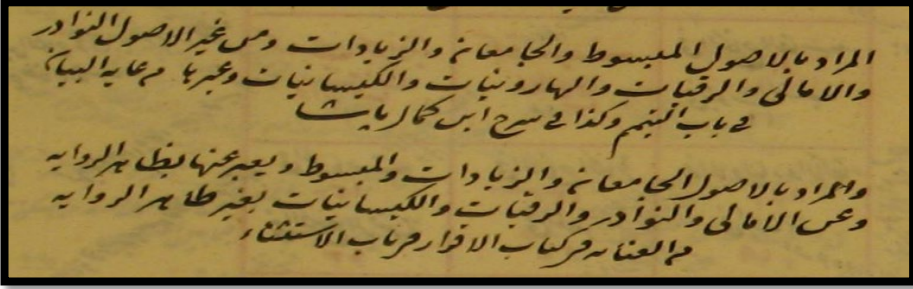 المراد بالاصول المبسوط والجامعان والزيادات ومن غير الاصول النوادر
والامالى والرقيات والهارونيات والكيسانيات وغيرها من غاية البيان
فى باب التيمم وكذا فى شرح ابن كمال پاشا
والمراد بالاصول الجامعان والزيادات والمبسوط ويعبر عنها بظاهر الرواية
وعن الامالى والنوادر والرقيات والكيسانيات بغير ظاهر الرواية
من العناية من كتاب الاقرار من باب الاستثناء